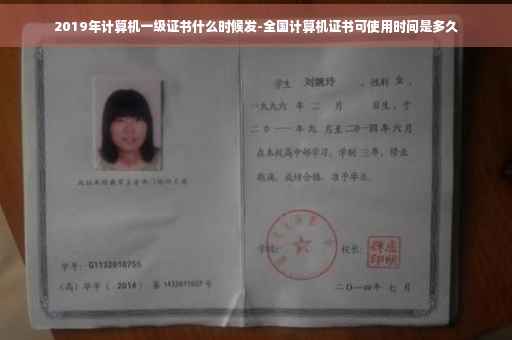 2019年计算机一级证书什么时候发-全国计算机证书可使用时间是多久
学生 刘婉玲 ，性别 女 ，
一九九六 年 二 月 日生，于
二〇一一年九 月至二〇一四年 六 月
在本校高中部学习，学制 三年，修业
期满，成绩合格，准予毕业。
学校：
校长：
学号：G1132010755
（高）毕字（ 2014 ）第 1432011607 号
二〇一四年 七 月